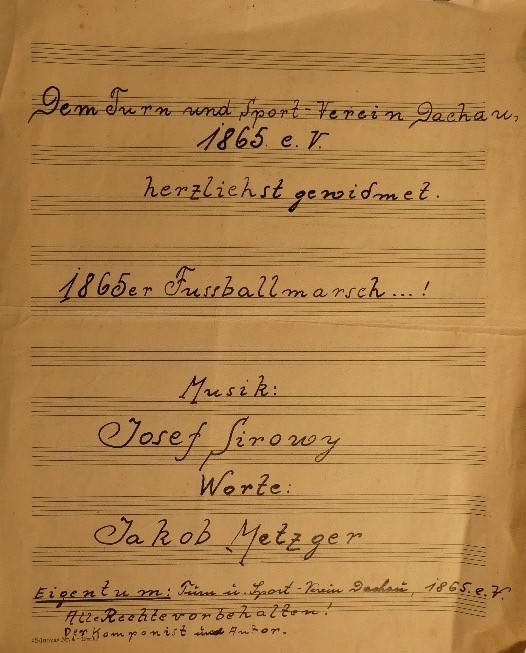 Dem Turn und Sport-Verein Dachau,
1865. e. V.
herzlichst gewidmet.
1865er Fussballmarsch...!
Musik:
Josef Sirowy
Worte:
Jakob Metzger
Eigentum: Turn u. Sport-Verein Dachau, 1865. e. V.
Alle Rechte vorbehalten!
Der Komponist und Autor.